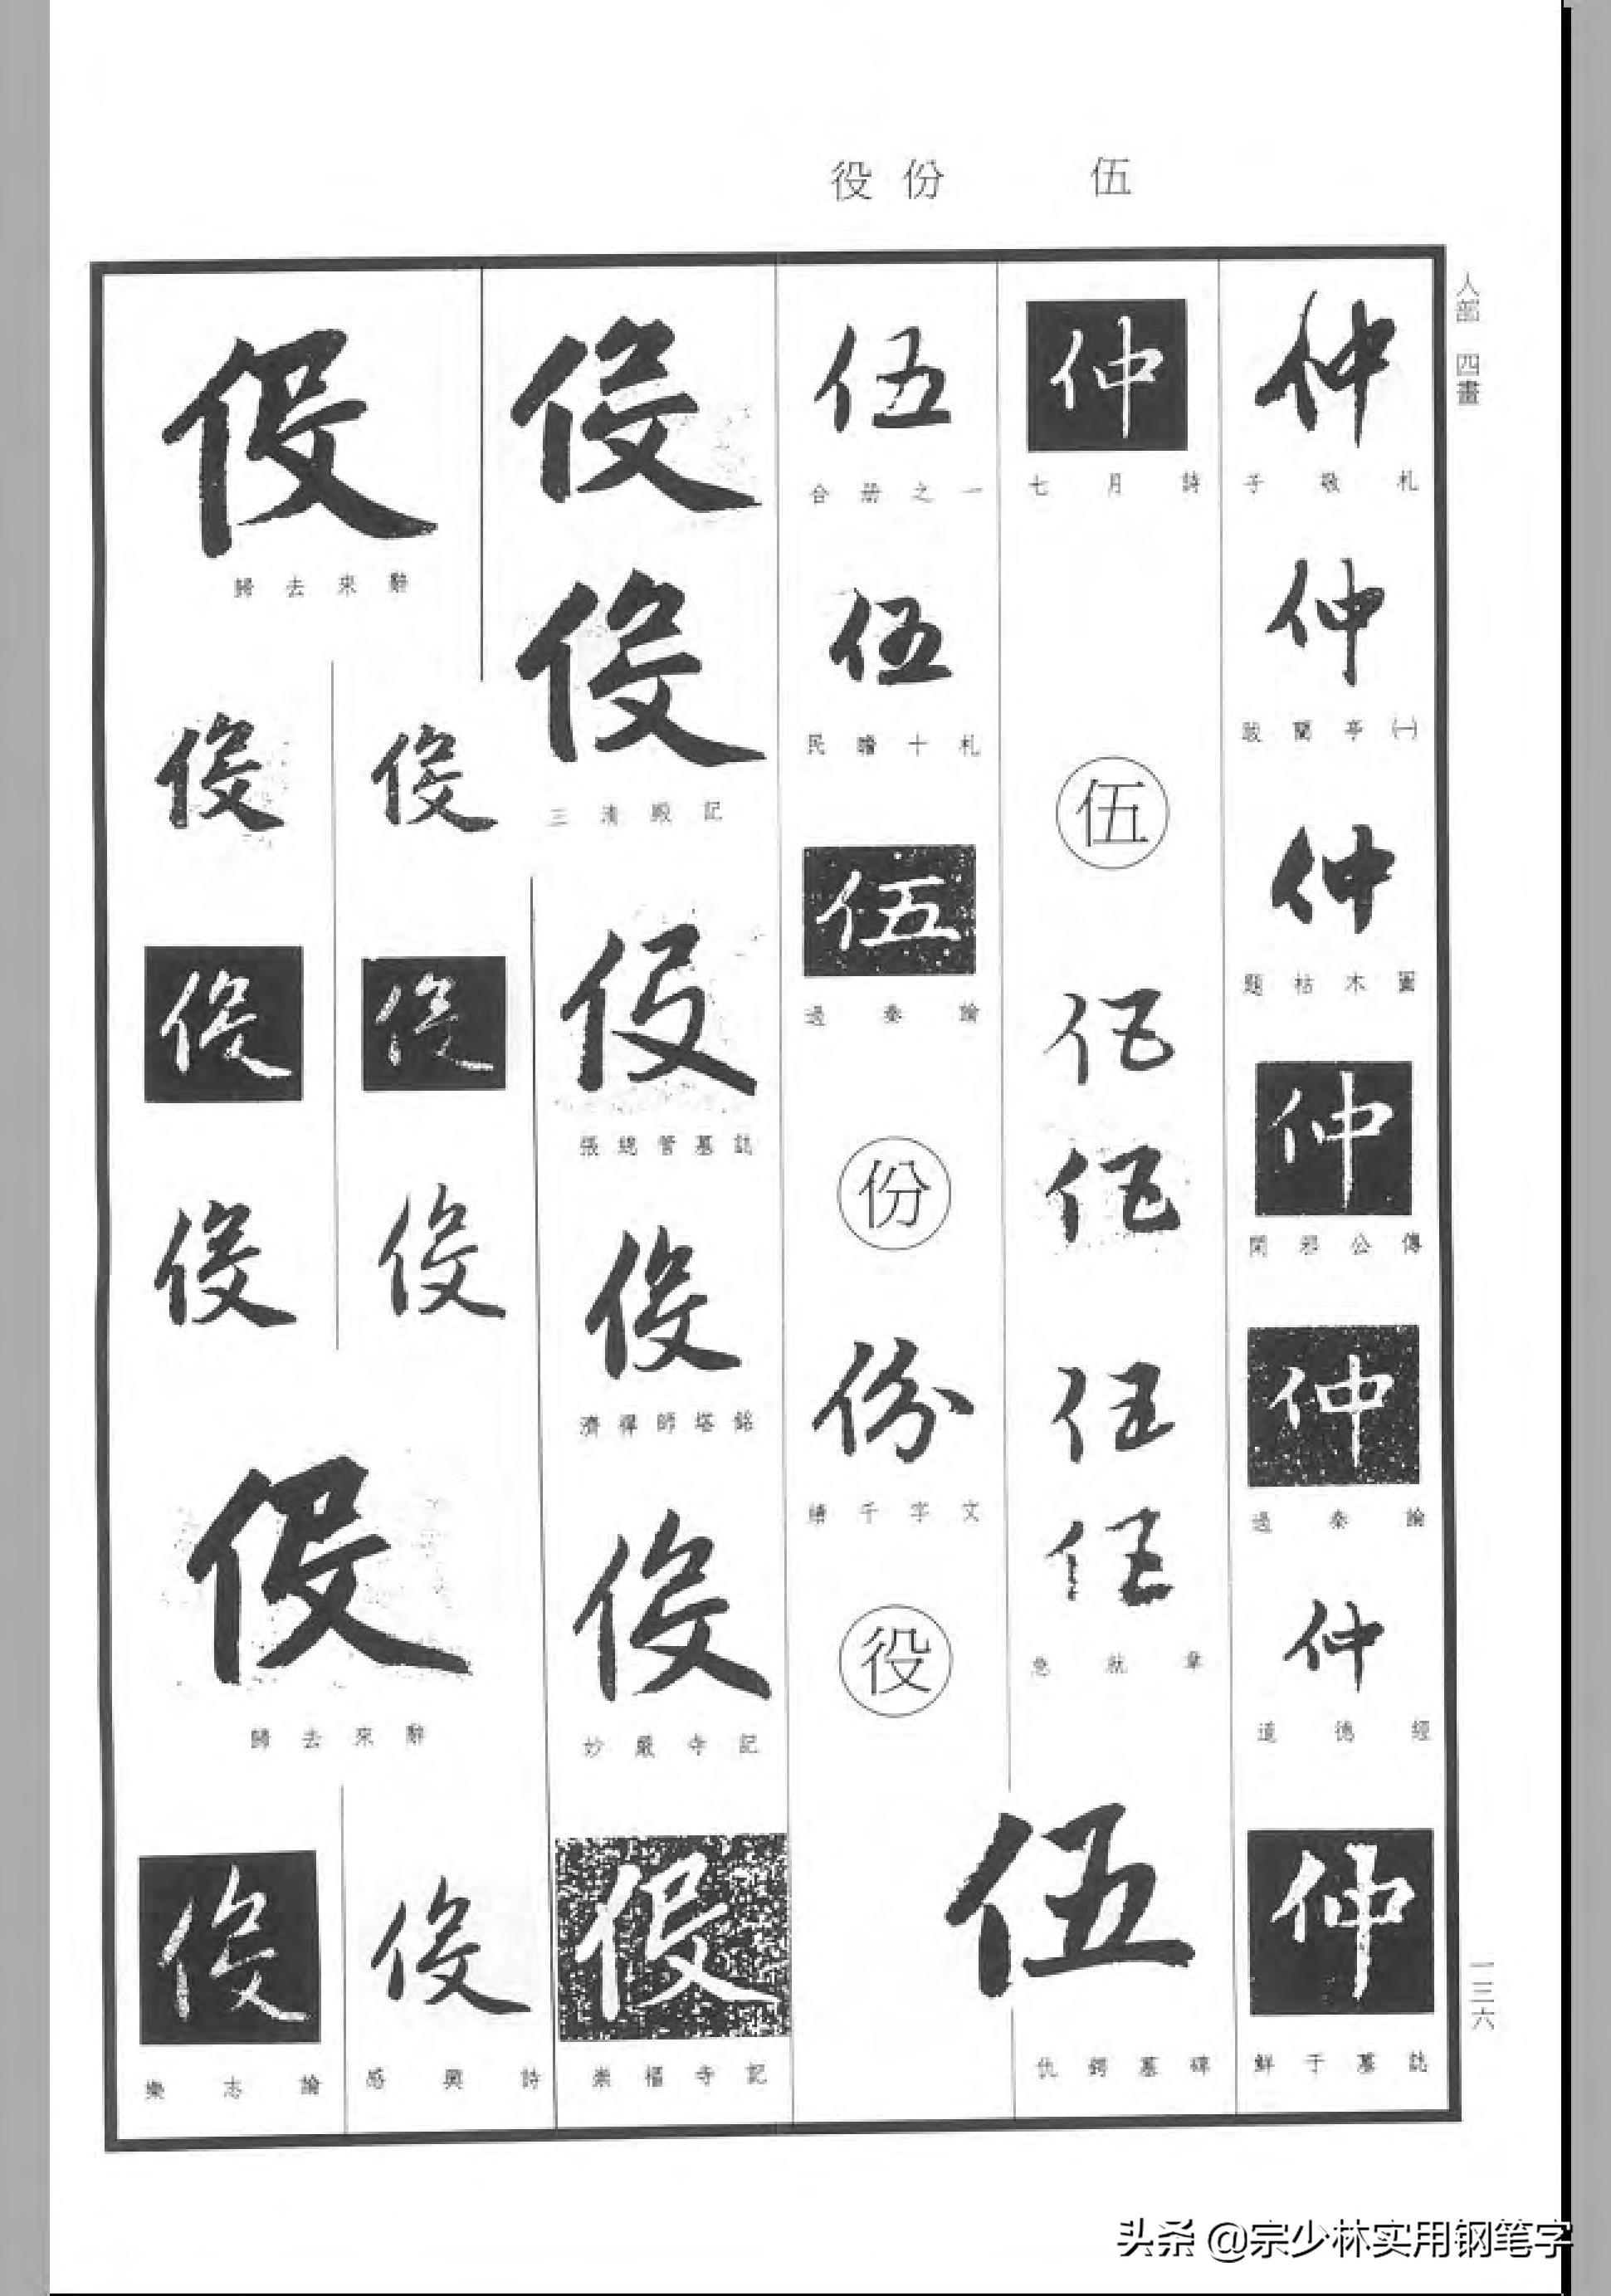 伍
份 役
人部 四畫
仲
子敬札
仲
跋蘭亭(一)
仲
題枯木圖
仲
閑邪公傳
仲
過秦論
仲
道德經
仲
鮮于墓誌
一三六
仲
七月詩
伍
伍
伍
伍
伍
急就章
伍
仇鍔墓碑
伍
合册之一
伍
民瞻十札
伍
過秦論
份
份
續千字文
役
役
役
三清殿記
役
張總管墓誌
役
濟禪師塔銘
役
妙嚴寺記
役
崇福寺記
役
歸去來辭
役
役
役
役
役
役
役
歸去來辭
役
感興詩
役
樂志論
头条 @宗少林实用钢笔字